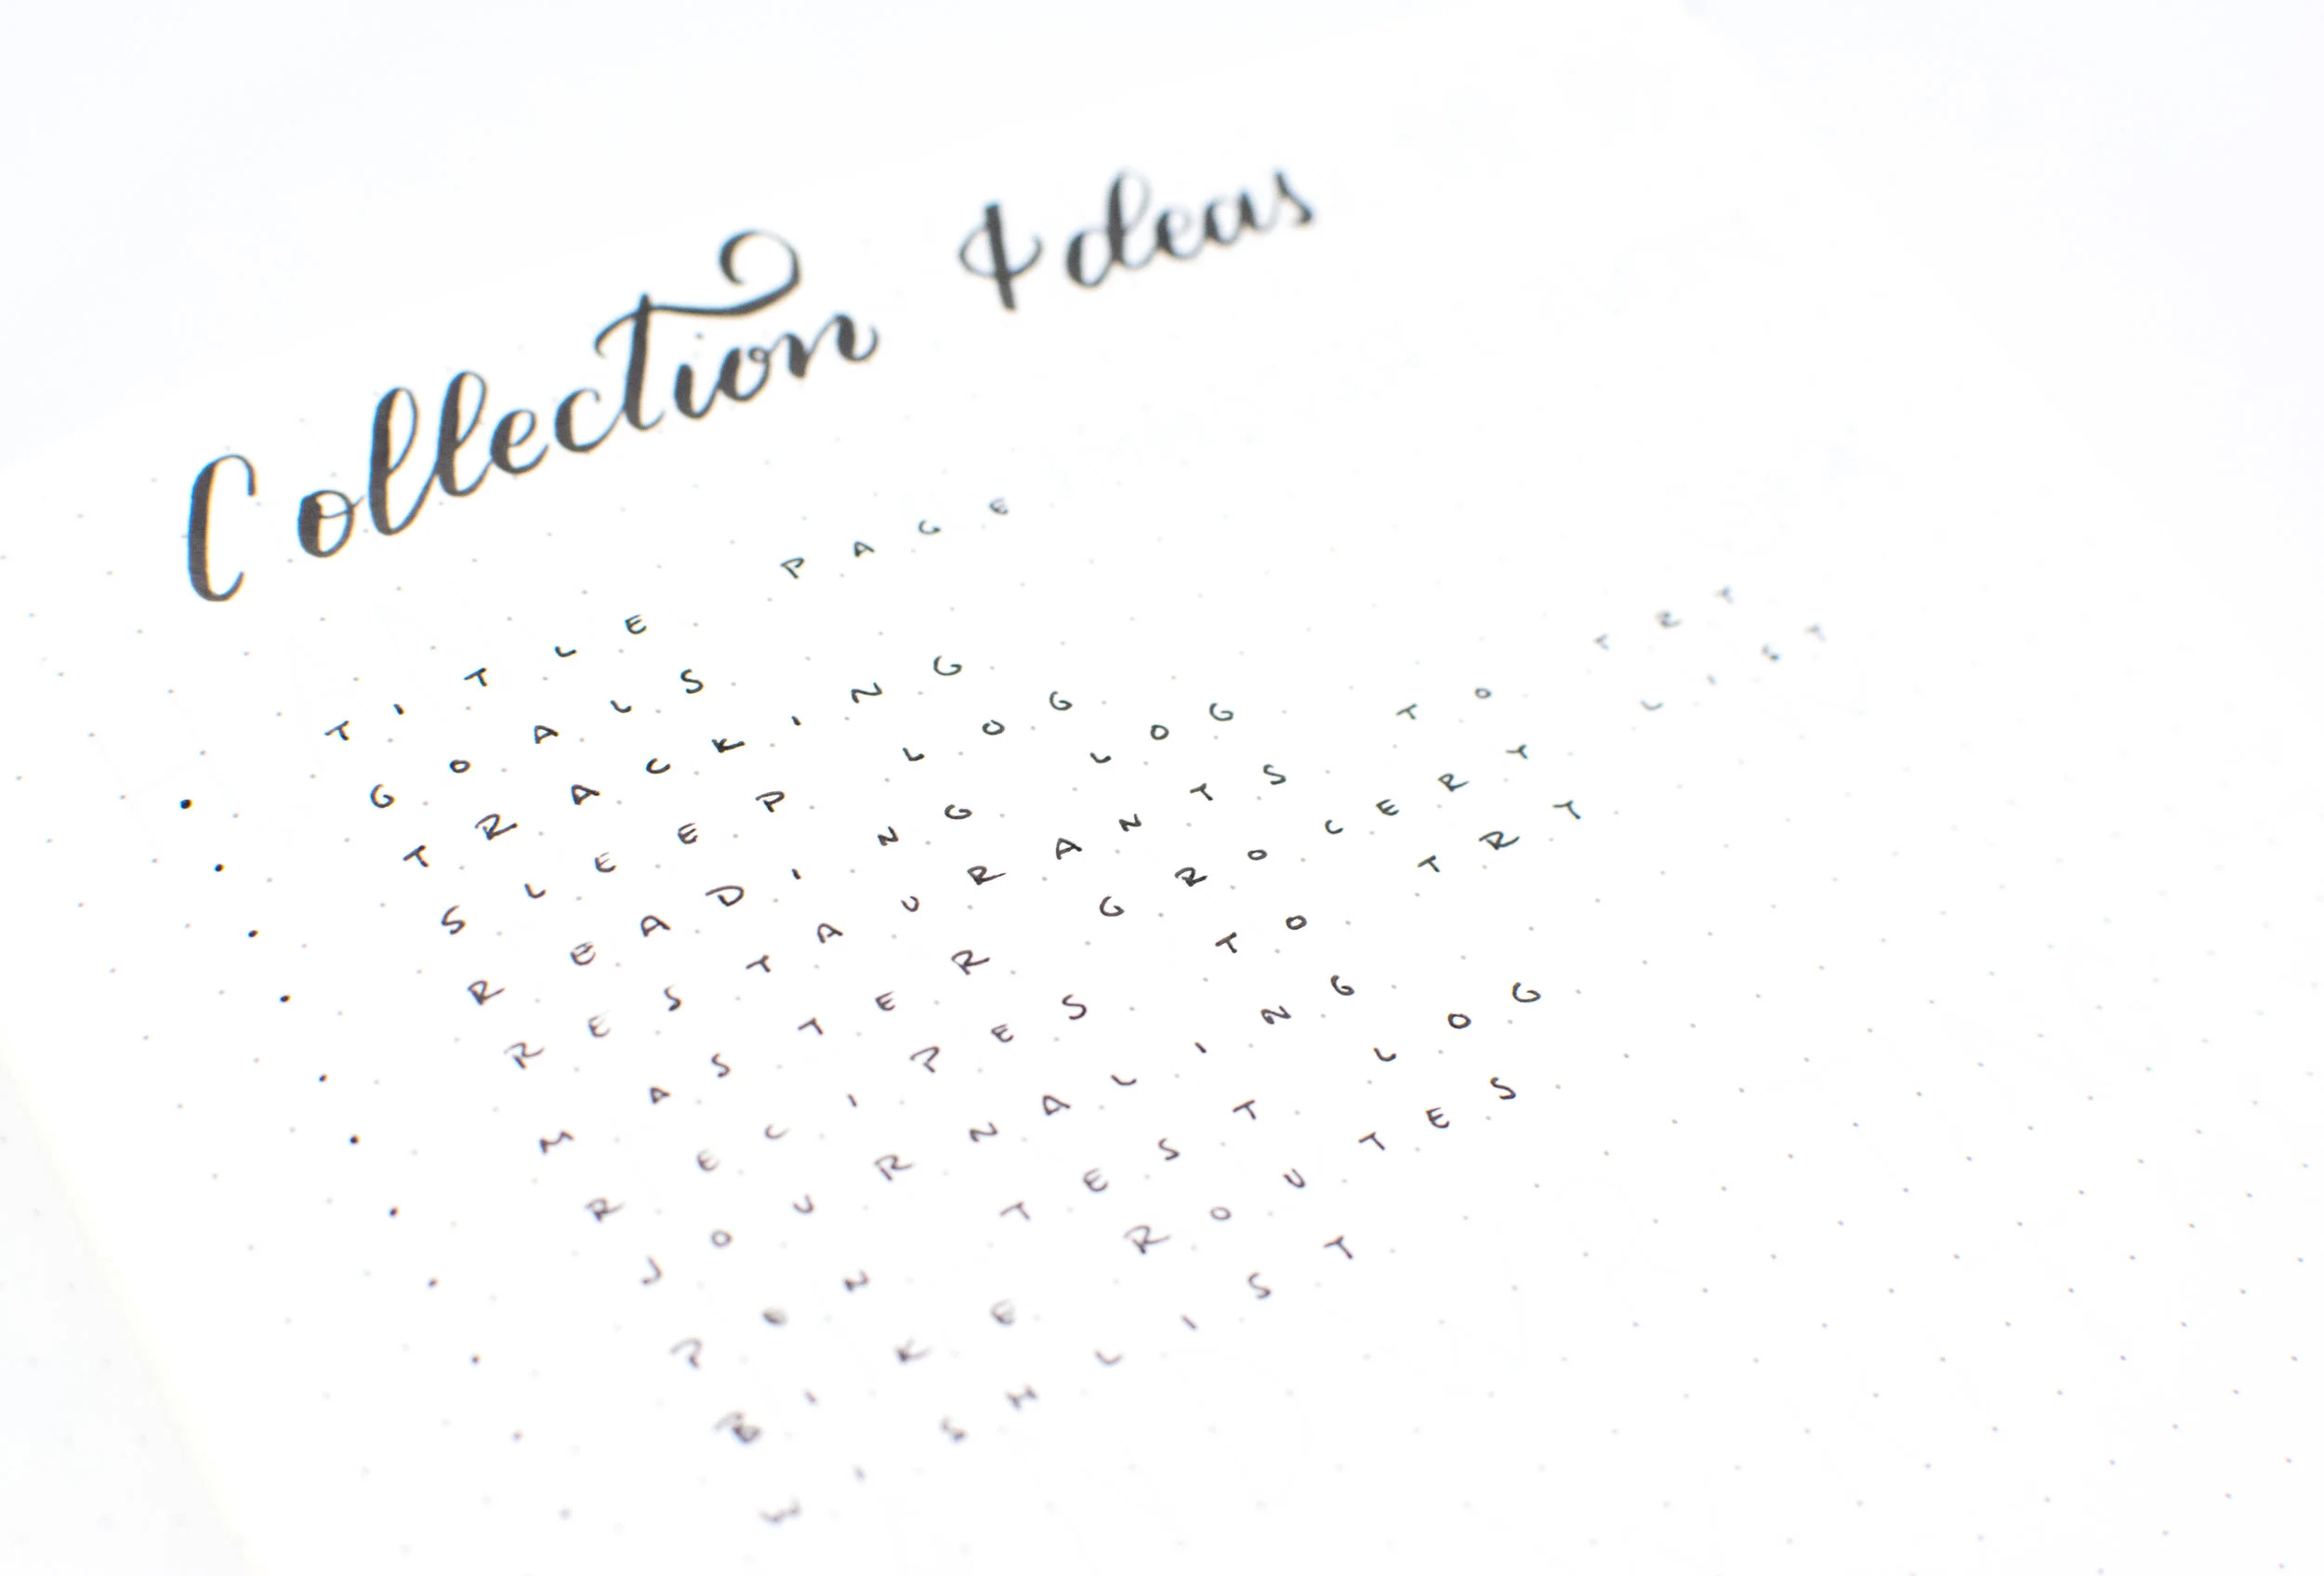 Collection Ideas
TITLE PAGE
GOALS
TRACKING
SLEEP LOG
READING LOG
RESTAURANTS TO TRY
MASTER GROCERY LIST
RECIPES TO TRY
JOURNALING
PEN TEST LOG
BIKE ROUTES
WISHLIST